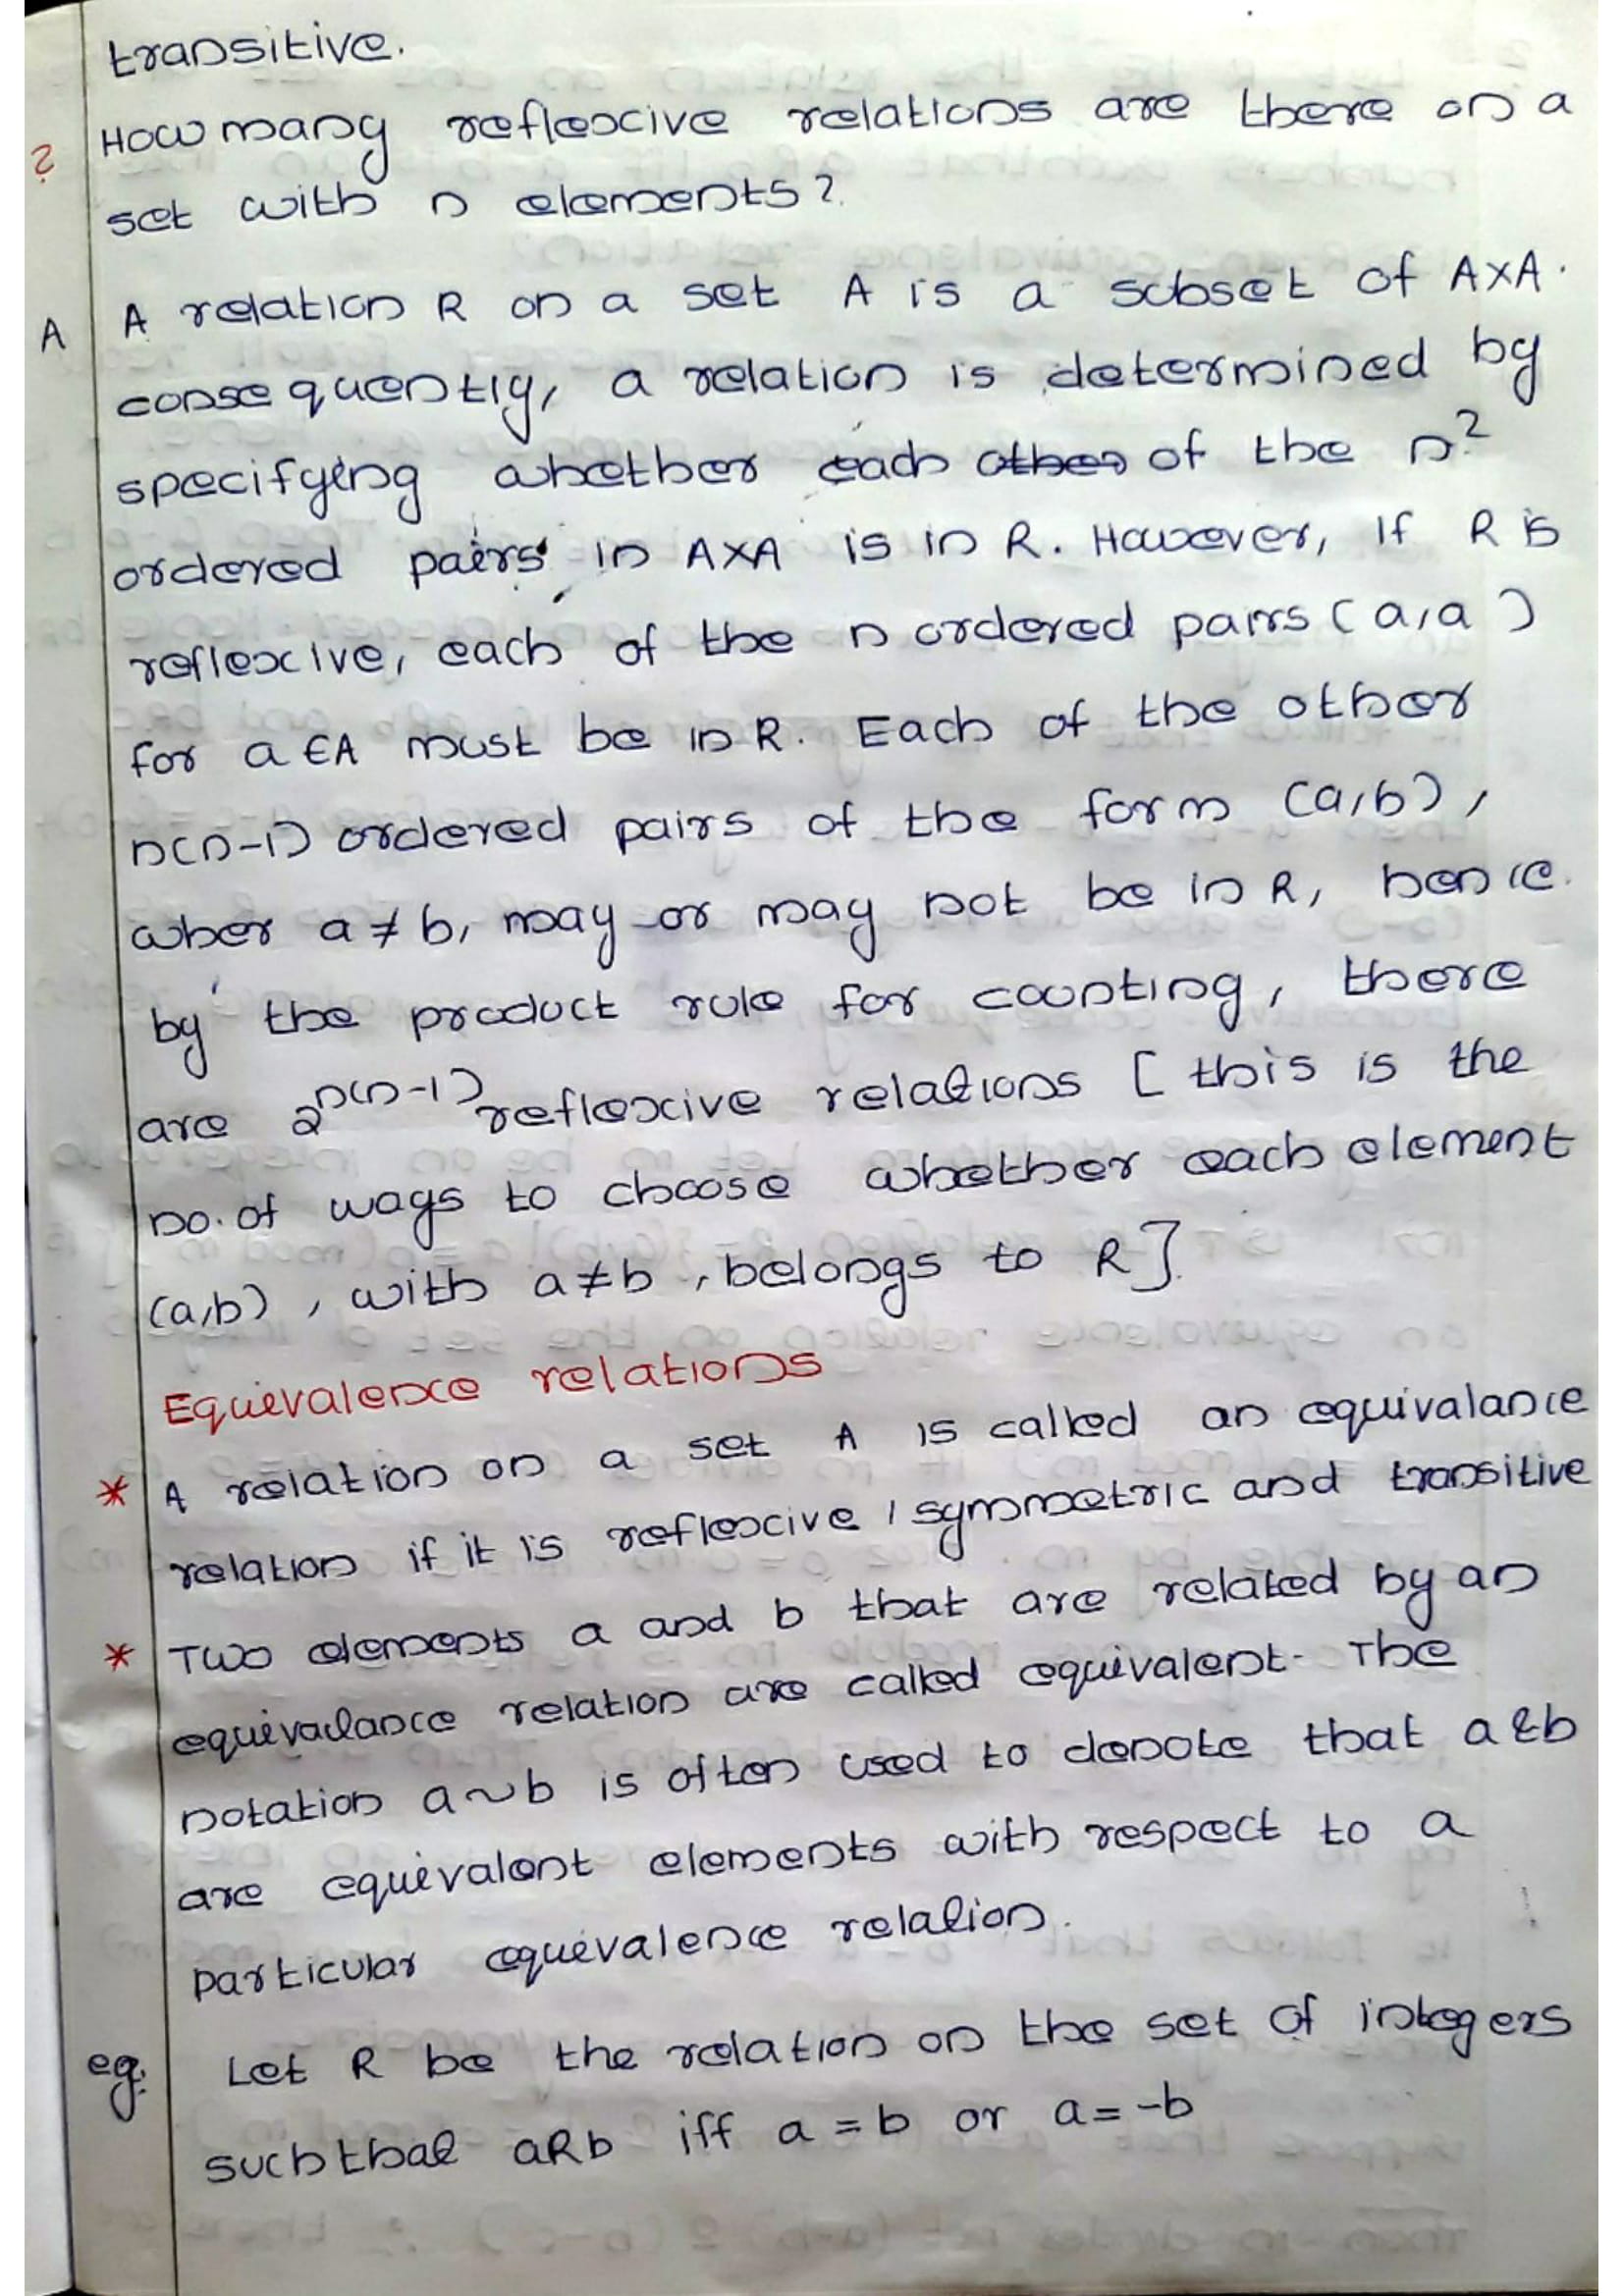 transitive.
? How many reflexcive relations are there on a
set with n elements?
A A relation R on a set A is a subset of A×A.
consequently, a relation is determined by
specifying whether each other of the n²
ordered pairs in A×A is in R. However, if R is
reflexcive, each of the n ordered pairs (a,a)
for a∈A must be in R. Each of the other
n(n-1) ordered pairs of the form (a,b),
wher a≠b, may or may not be in R, hence
by the product rule for counting, there
are 2^n(n-1) reflexcive relations [this is the
no. of ways to choose whether each element
(a,b), with a≠b, belongs to R]
Equivalence relations
* A relation on a set A is called an equivalance
relation if it is reflexcive, symmetric and transitive
* Two elements a and b that are related by an
equivalance relation are called equivalent. The
notation a~b is often used to denote that a & b
are equivalent elements with respect to a
particular equivalence relation.
eg: Let R be the relation on the set of integers
such that aRb iff a=b or a=-b